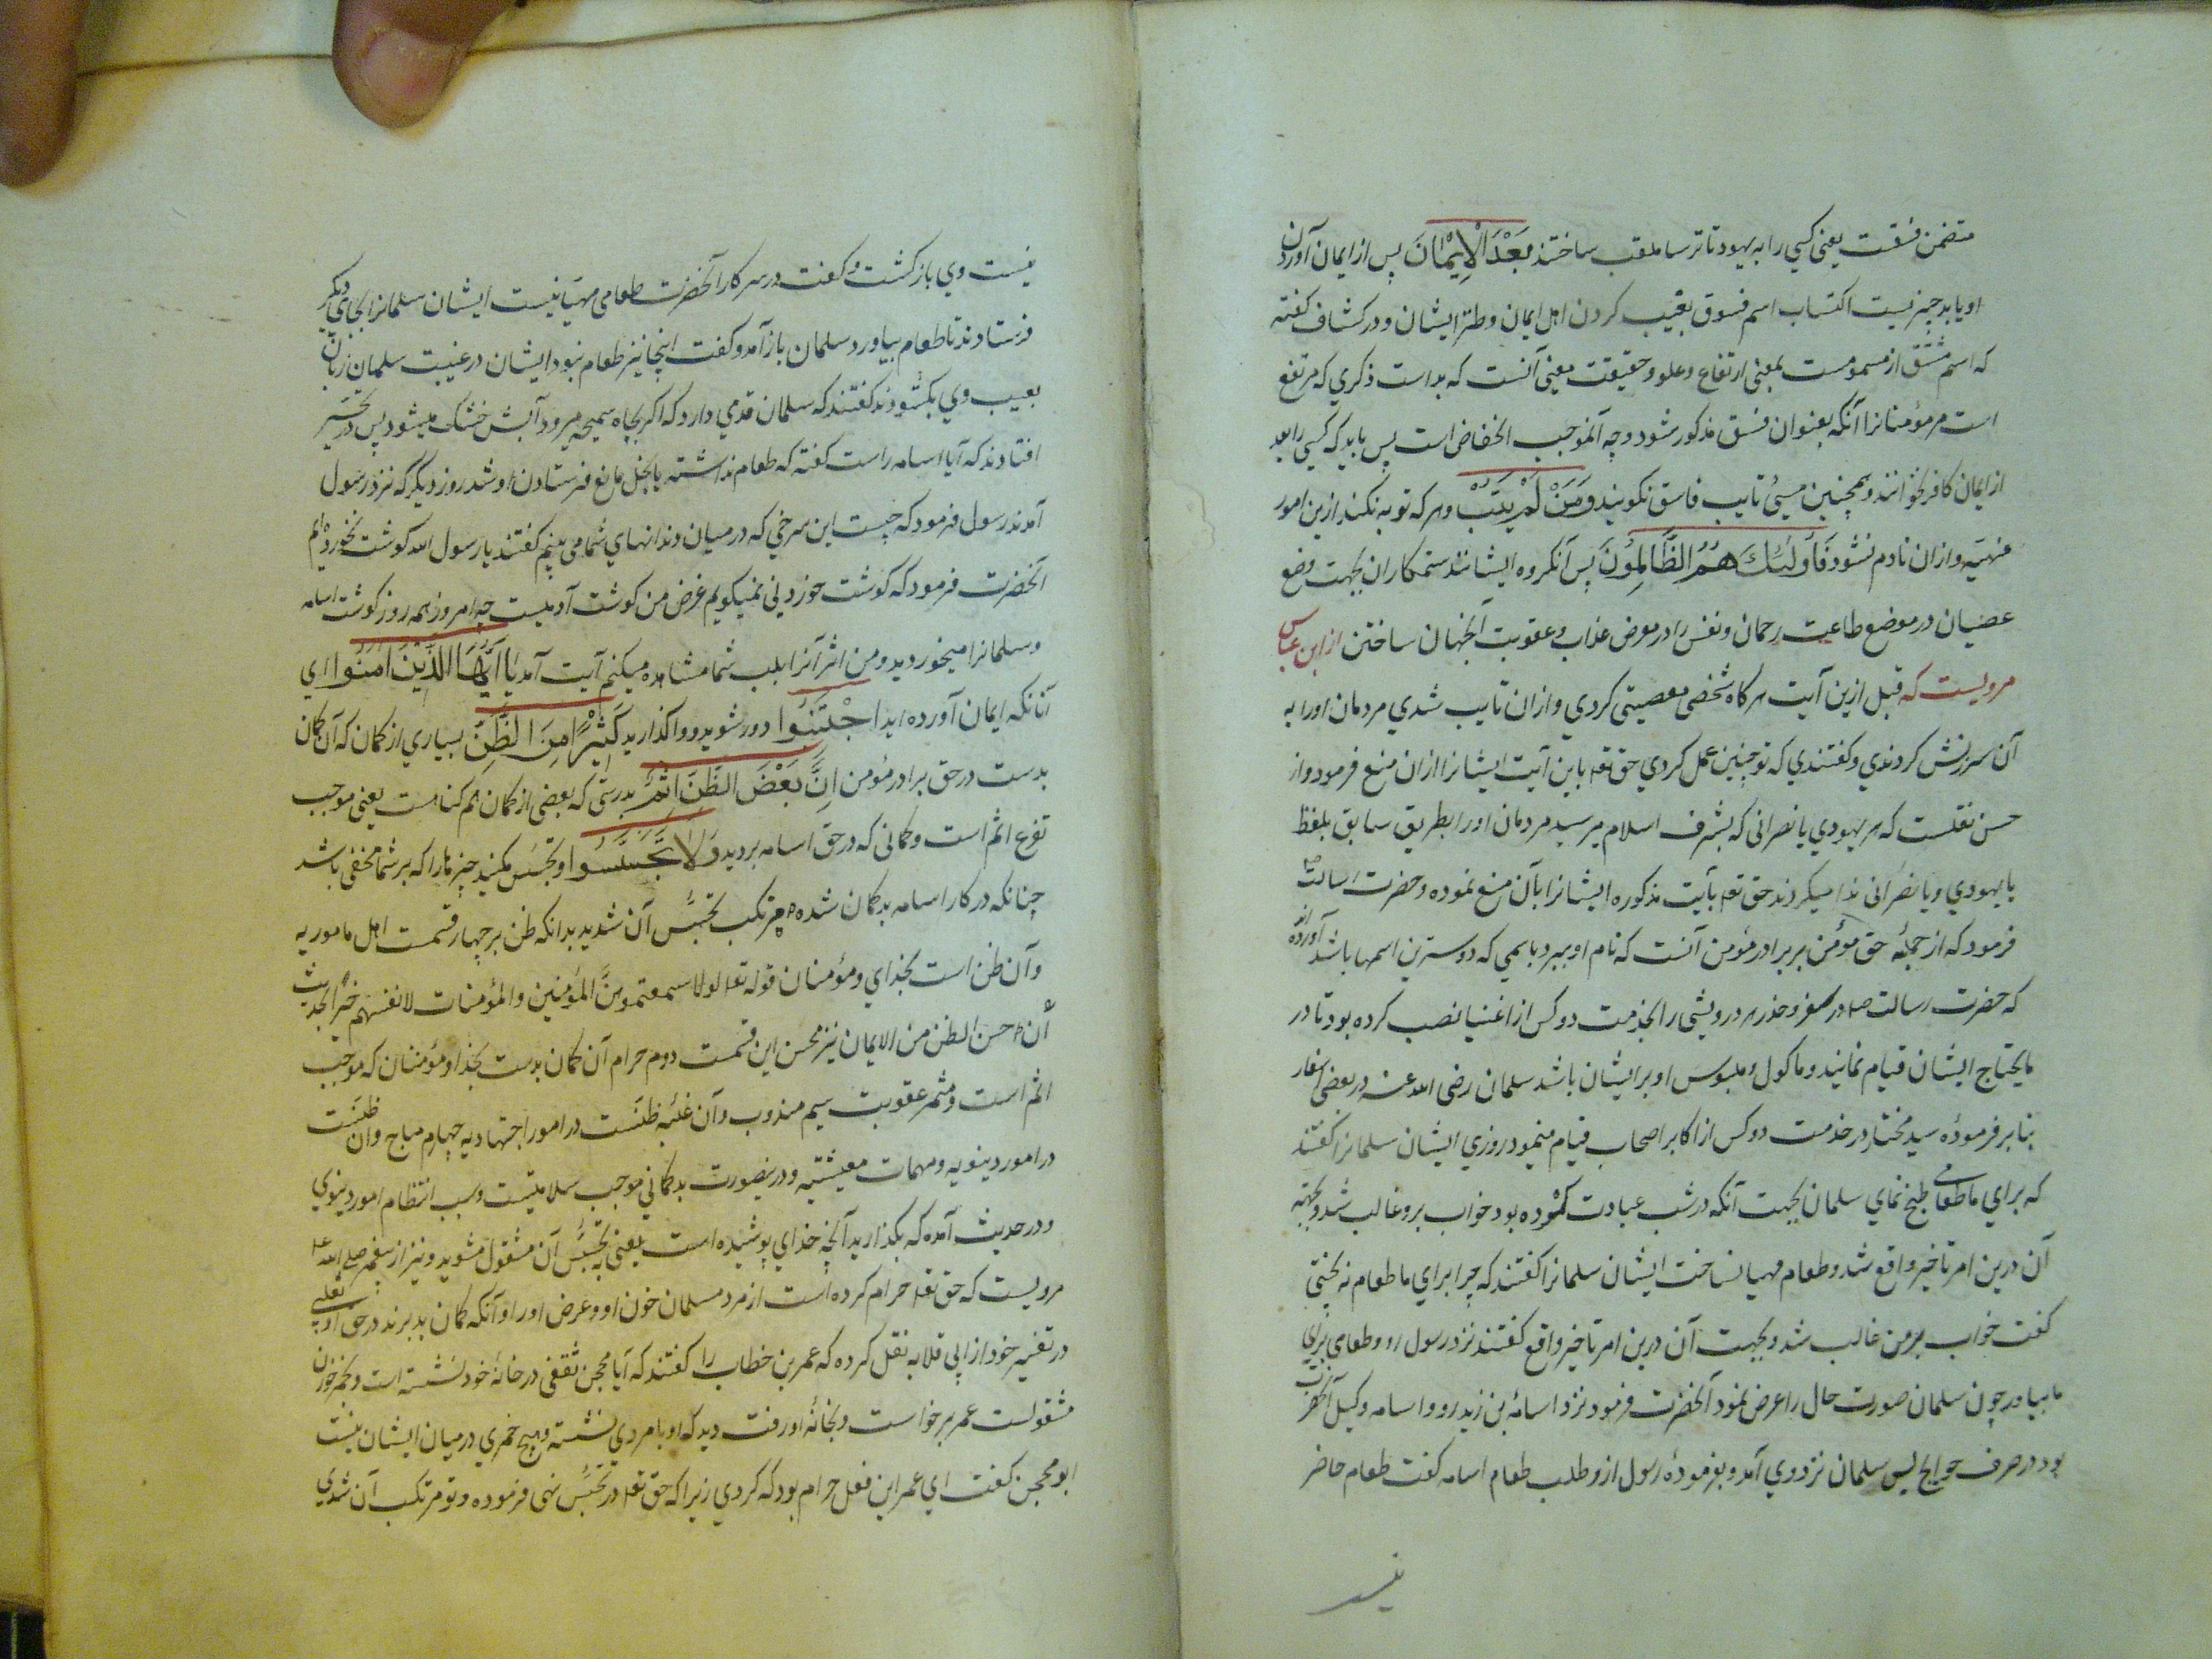 متضمن فسقت یعنی کسی را به یهود تا ترسا ملقب ساختند بَعْدَ الْاِیْمٰانَ پس از ایمان آوردن
او یا بد چیزیست اکتساب اسم فسوق بعیب کردن اهل ایمان و طنز ایشان و در کشاف کفته
که اسم مشتق از سموست بمعنی ارتفاع و علو و حقیقت معنی آنست که بد است ذکری که مرتفع
است مر مؤمنانرا آنکه بعنوان فسق مذکور شود و چه آن موجب انخفاض است پس باید که کسی را بعد
از ایمان کافر نخوانند و همچنین مسئ تایب فاسق نکویند وَمَنْ لَمْ یَتُبْ و هر که توبه نکند ازین امور
منهیّه و از ان نادم نشود فَاُولٰئِكَ هُمُ الظَّالِمُونَ پس آنکروه ایشانند ستمکاران بجهت وضع
عصیان در موضع طاعیت رحمان و نفس را در معرض عذاب و عقوبت آنجهان ساختن از ابن عباس
مرویست که قبل ازین آیت هر کاه شخصی معصیتی کردی و از ان تایب شدی مردمان او را به
آن سرزنش کردندی و کفتندی که تو چنین عمل کردی حق تعه باین آیت ایشانرا از ان منع فرمود و از
حسن نقلست که هر یهودی یا نصرانی که بشرف اسلام میرسید مردمان او را بطریق سابق بلفظ
یا یهودی و یا نصرانی ندا میکردند حق تعه بآیت مذکوره ایشانرا بآن منع نموده و حضرت رسالت
فرمود که از جملهٔ حق مؤمن بر برادر مؤمن آنست که نام او ببرد باسمی که دوسترین اسمها باشد آورده اند
که حضرت رسالت ص در سفر و حضر هر درویشی را بخدمت دو کس از اغنیا نصب کرده بود تا در
مایحتاج ایشان قیام نمایند و ماکول و ملبوس او بر ایشان باشد سلمان رضی الله عنه در بعضی اسفار
بنا بر فرمودهٔ سید مختار در خدمت دو کس از اکابر اصحاب قیام مینمود روزی ایشان سلمانرا کفتند
که برای ما طعامی طبخ نمای سلمان بجهت آنکه در شب عبادت نموده بود خواب برو غالب شد و بجهة
آن درین امر تاخیر واقع شد و طعام مهیا نساخت ایشان سلمانرا کفتند که چرا برای ما طعام نه پختی
کفت خواب بر من غالب شد و بجهت آن درین امر تاخیر واقع کفتند نزد رسول رو و طعامی برای
ما بیاور چون سلمان صورت حال را عرض نمود آنحضرت فرمود نزد اسامهٔ بن زید رو و اسامه وکیل آنحضرت
بود در صرف حوایج پس سلمان نزد وی آمد و بفرمودهٔ رسول ازو طلب طعام اسامه کفت طعام حاضر
نیست
نیست وی باز کشت و کفت در سرکار آنحضرت طعامی مهیّا نیست ایشان سلمانرا بجای دیکر
فرستادند تا طعام بیاورد سلمان باز آمد و کفت اینجا نیز طعام نبود ایشان در غیبت سلمان زبان
بعیب وی بکشودند کفتند که سلمان قدمی دارد که اکر بچاه سمیحه میرود آبش خشک میشود پس در تجسّس
افتادند که آیا اسامه راست کفته که طعام نداشته یا بخل مانع فرستادن او شد روز دیکر که نزد رسول
آمدند رسول فرمود که چیست این سرخی که در میان دندانهای شما می بینم کفتند یا رسول الله کوشت نخورده‌ایم
آنحضرت فرمود که کوشت خوردنی نمیکویم غرض من کوشت آدمیست چه امروز همه روز کوشت اسامه
و سلمانرا میخوردید و من اثر آنرا بلب شما مشاهده میکنم آیت آمد یَا اَیُّهَا الَّذِیْنَ اٰمَنُوا ای
آنانکه ایمان آورده اید اجْتَنِبُوا دور شوید و واکذارید کَثِیْرًا مِنَ الظَّنِّ بسیاری از کمان که آن کمان
بدست در حق برادر مؤمن اِنَّ بَعْضَ الظَّنِّ اِثْمٌ بدرستی که بعضی از کمان هم کناهست یعنی موجب
توع اثم است و کمانی که در حق اسامه بردید وَلَا تَجَسَّسُوا و تجسّس مکنید چیزهارا که بر شما مخفی باشد
چنانکه در کار اسامه بد کمان شده مرتکب تجسّس آن شدید بدانکه ظن بر چهار قسمت اول مامور به
و آن ظن است بخدای و مؤمنان قوله تعه لولا سمعتموه ظن المؤمنین والمؤمنات لانفسهم خیرا و حدیث
أن حسن الظن من الایمان نیز محسن این قسمت دوم حرام آن کمان بدست بخدا و مؤمنان که موجب
اثم است و مثمر عقوبت سیم مندوب و آن غلبهٔ ظنّست در امور اجتهادیه چهارم مباح و آن ظنّست
در امور دینویه و مهمات معیشتیه و درینصورت بد کمانی موجب سلامتیست و سبب انتظام امور دینوی
و در حدیث آمده که بکذارید آنچه خدای پوشیده است یعنی به تجسّس آن مشغول مشوید و نیز از پیغمبر صلی الله علیه
مرویست که حق تعه حرام کرده است از مرد مسلمان خون او و عرض او را و آنکه کمان بد برند در حق او ثعلبی
در تفسیر خود از ابی قلابه نقل کرده که عمر بن خطاب را کفتند که ابا محجن ثقفی در خانهٔ خود نشسته است و بخمر خوردن
مشغولست عمر برخواست و بخانهٔ او رفت دید که او با مردی نشسته و هیچ خمری در میان ایشان نیست
ابو محجن کفت ای عمر این فعل حرام بود که کردی زیرا که حق تعه در تجسّس نهی فرموده و تو مرتکب آن شدی